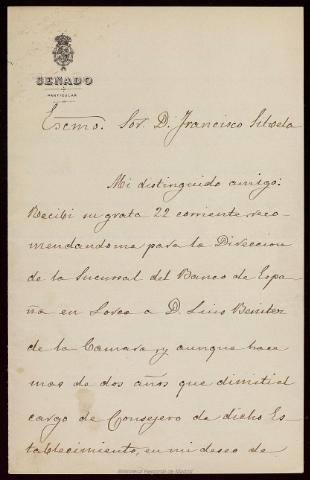 SENADO
PARTICULAR
Escmo. Sor. D. Francisco Silvela
Mi distinguido amigo:
Recibí su grata 22 corriente reco-
mendandome para la Direccion
de la Sucursal del Banco de Espa-
ña en Lorca a D. Luis Benitez
de la Camara y aunque hace
mas de dos años que dimiti el
cargo de Consejero de dicho Es-
tablecimiento, en mi deseo de
Biblioteca Regional de Madrid